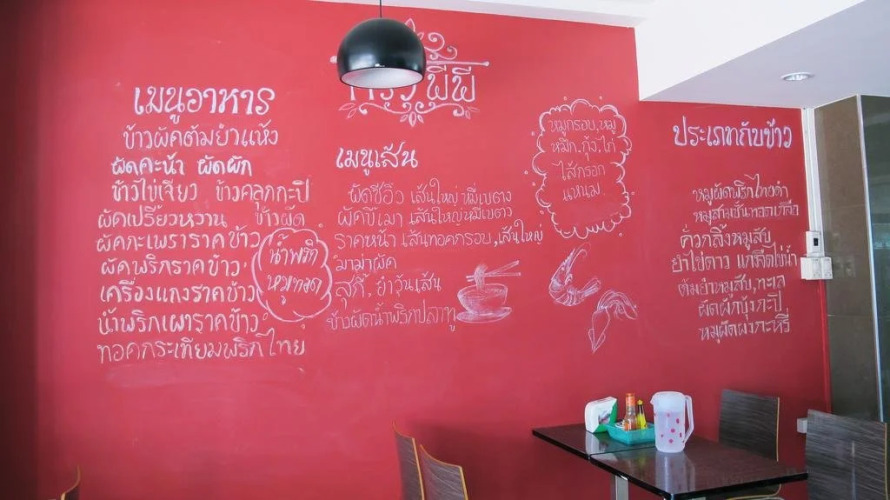 ครัวพีพี
เมนูอาหาร
ข้าวผัดต้มยำแห้ง
ผัดคะน้า ผัดผัก
ข้าวไข่เจียว ข้าวคลุกกะปิ
ผัดเปรี้ยวหวาน ข้าวผัด
ผัดกะเพราราดข้าว
ผัดพริกราดข้าว
เครื่องแกงราดข้าว
น้ำพริกเผาราดข้าว
ทอดกระเทียมพริกไทย
น้ำพริก
หมูทอด
เมนูเส้น
ผัดซีอิ๊ว เส้นใหญ่ หมี่เบตง
ผัดขี้เมา เส้นใหญ่ หมี่เบตง
ราดหน้า เส้นทอดกรอบ, เส้นใหญ่
มาม่าผัด
สุกี้, ยำวุ้นเส้น
ข้าวผัดน้ำพริกปลาทู
หมูกรอบ, หมู
หมึก, กุ้ง, ไก่
ไส้กรอก
แหนม
ประเภทกับข้าว
หมูผัดพริกไทยดำ
หมูสามชั้นทอดน้ำปลา
คั่วกลิ้งหมูสับ
ยำไข่ดาว แกงจืดไข่น้ำ
ต้มยำหมูสับ, ทะเล
ผัดผักบุ้งกะปิ
หมูผัดผงกะหรี่